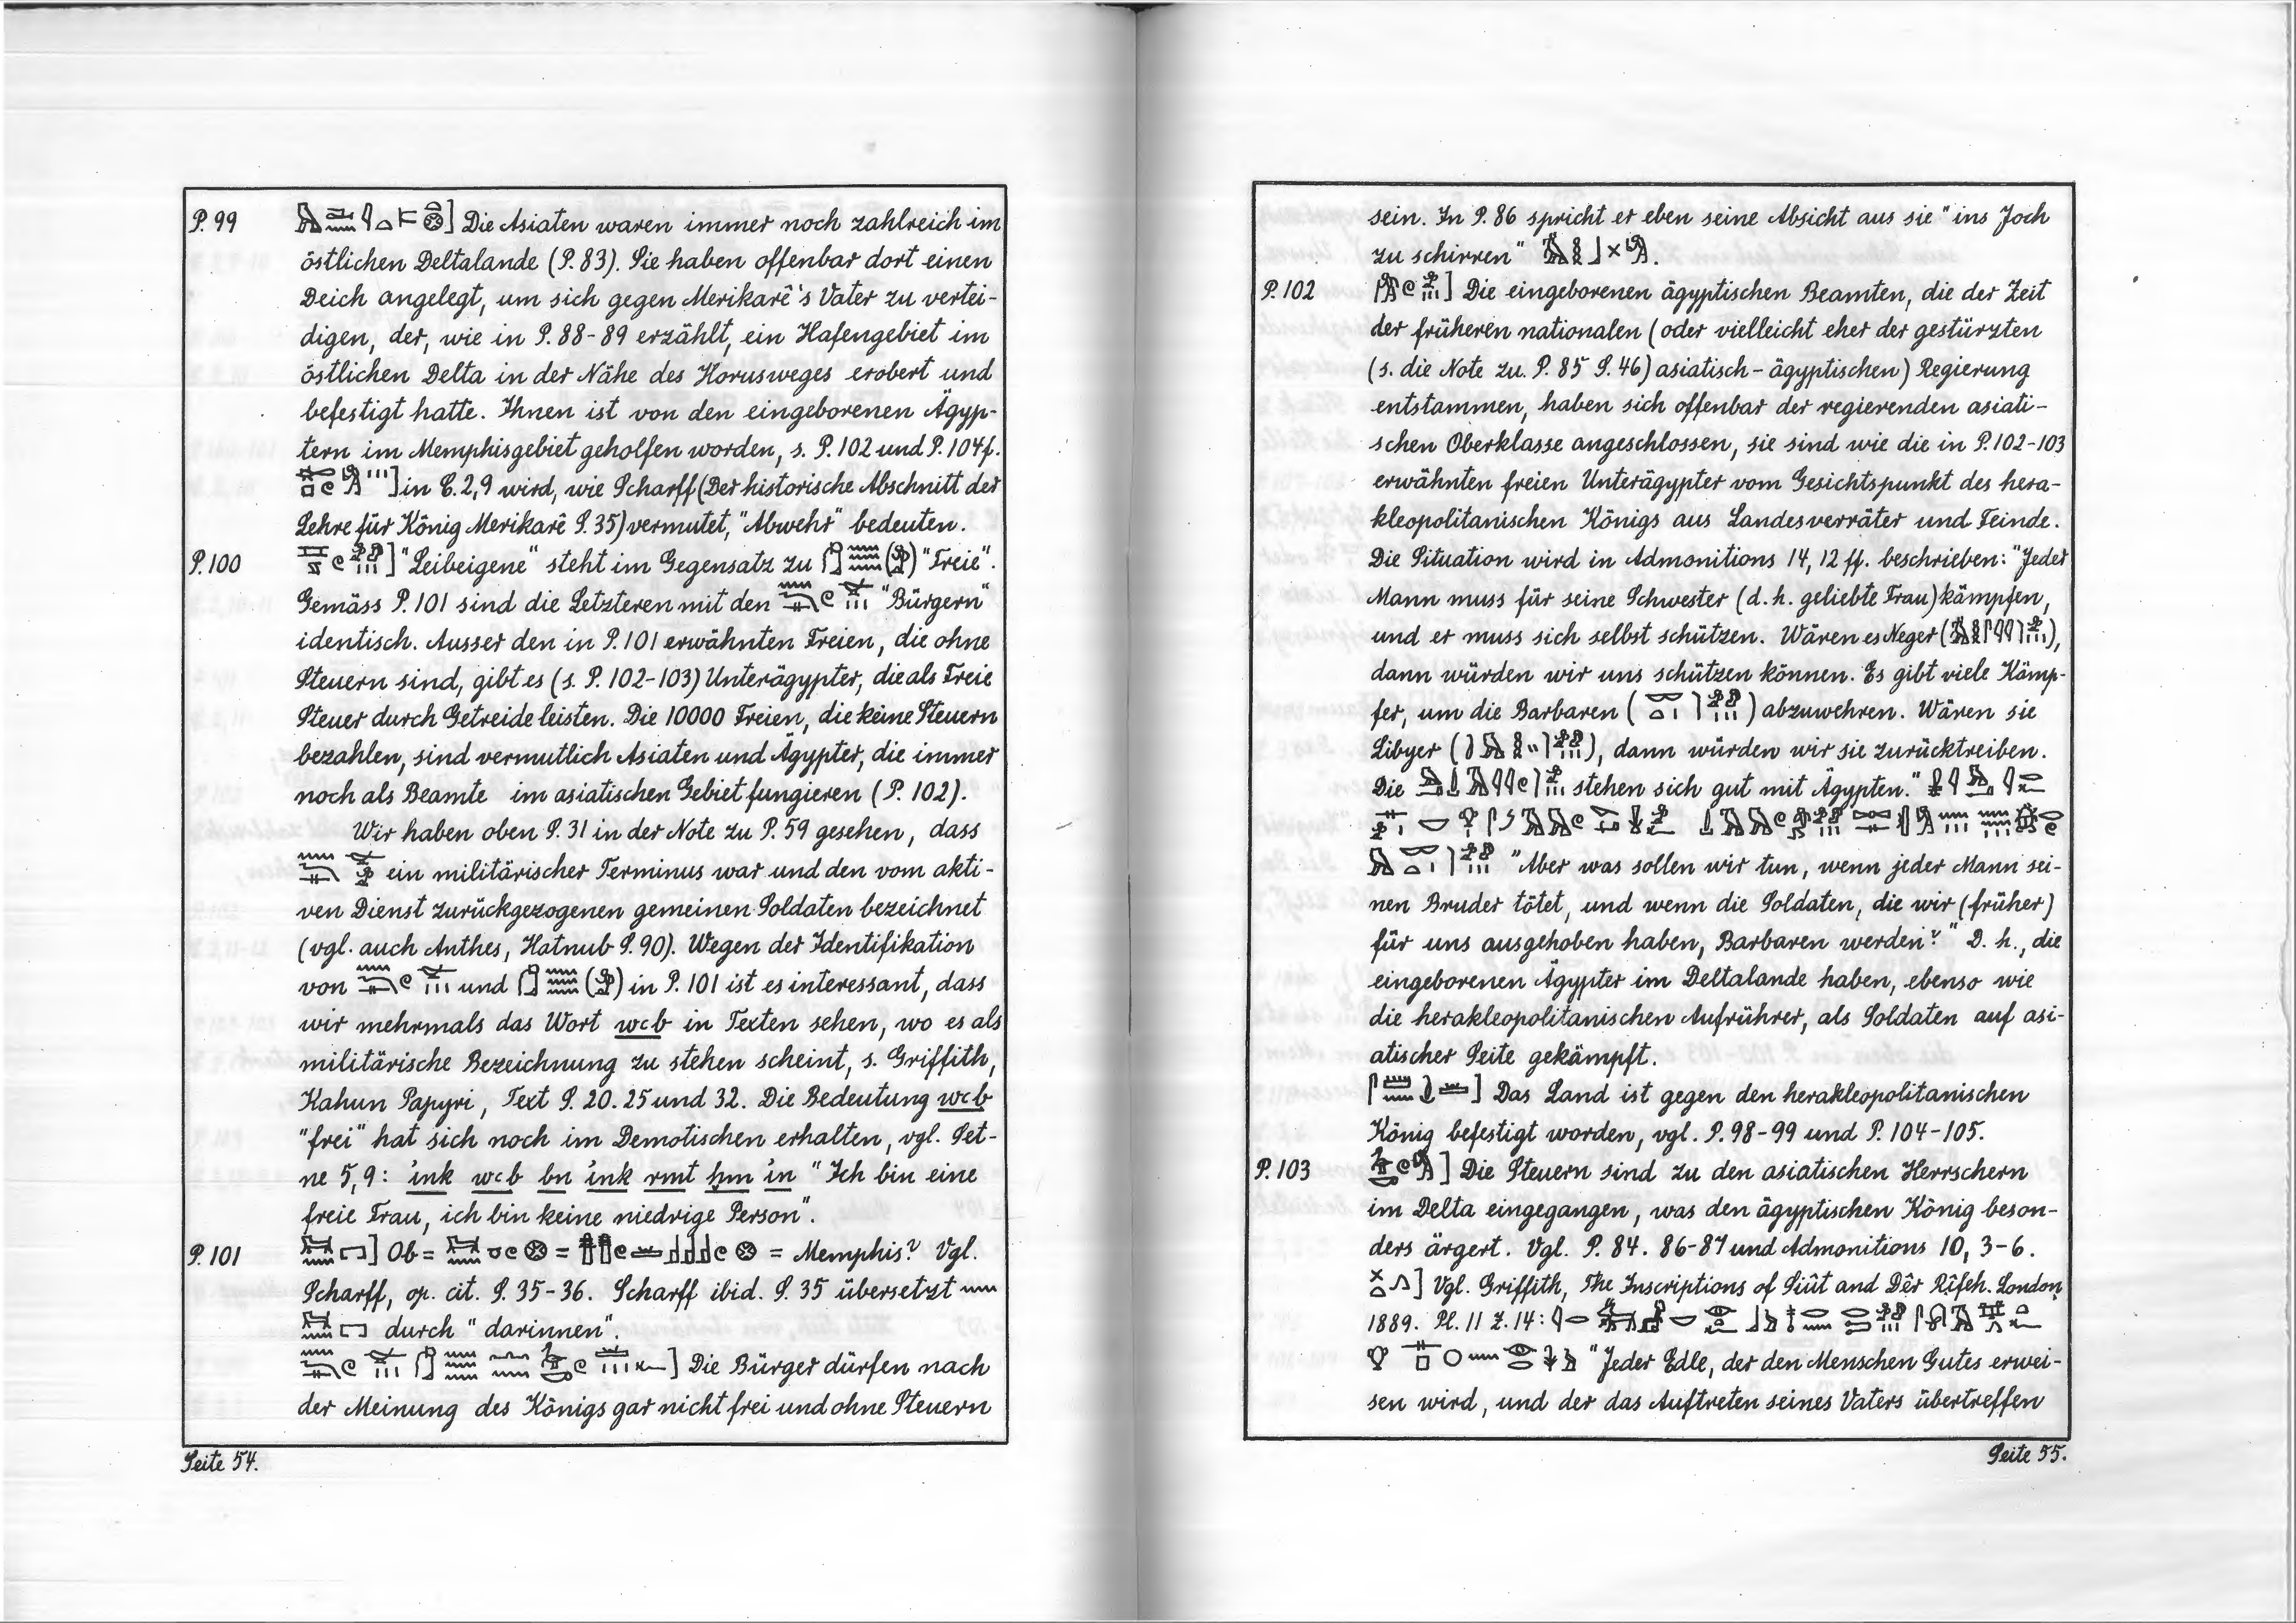 P. 99 ] Die Asiaten waren immer noch zahlreich im
östlichen Deltalande (P. 83). Sie haben offenbar dort einen
Deich angelegt, um sich gegen Merikarê's Vater zu vertei-
digen, der, wie in P. 88-89 erzählt, ein Hafengebiet im
östlichen Delta in der Nähe des Horusweges erobert und
befestigt hatte. Ihnen ist von den eingeborenen Ägyp-
tern im Memphisgebiet geholfen worden, s. P. 102 und P. 104f.
] in C. 2,9 wird, wie Scharff (Der historische Abschnitt der
Lehre für König Merikarê S. 35) vermutet, "Abwehr" bedeuten.
P. 100 ] "Leibeigene" steht im Gegensatz zu "Freie".
Gemäss P. 101 sind die Letzteren mit den "Bürgern"
identisch. Ausser den in P. 101 erwähnten Freien, die ohne
Steuern sind, gibt es (s. P. 102-103) Unterägypter, die als Freie
Steuer durch Getreide leisten. Die 10000 Freien, die keine Steuern
bezahlen, sind vermutlich Asiaten und Ägypter, die immer
noch als Beamte im asiatischen Gebiet fungieren (P. 102).
Wir haben oben S. 31 in der Note zu P. 59 gesehen, dass
ein militärischer Terminus war und den vom akti-
ven Dienst zurückgezogenen gemeinen Soldaten bezeichnet
(vgl. auch Anthes, Hatnub S. 90). Wegen der Identifikation
von und in P. 101 ist es interessant, dass
wir mehrmals das Wort wcb in Texten sehen, wo es als
militärische Bezeichnung zu stehen scheint, s. Griffith,
Kahun Papyri, Text S. 20. 25 und 32. Die Bedeutung wcb
"frei" hat sich noch im Demotischen erhalten, vgl. Set-
ne 5,9: ἰnk wcb bn ἰnk rmt ḫm ἰn "Ich bin eine
freie Frau, ich bin keine niedrige Person".
P. 101 ] Ob = = = Memphis? Vgl.
Scharff, op. cit. S. 35-36. Scharff ibid. S. 35 übersetzt
durch "darinnen".
] Die Bürger dürfen nach
der Meinung des Königs gar nicht frei und ohne Steuern
Seite 54.
sein. In P. 86 spricht er eben seine Absicht aus sie "ins Joch
zu schirren" .
P. 102 ] Die eingeborenen ägyptischen Beamten, die der Zeit
der früheren nationalen (oder vielleicht eher der gestürzten
(s. die Note zu. P. 85 S. 46) asiatisch-ägyptischen) Regierung
entstammen, haben sich offenbar der regierenden asiati-
schen Oberklasse angeschlossen, sie sind wie die in P. 102-103
erwähnten freien Unterägypter vom Gesichtspunkt des hera-
kleopolitanischen Königs aus Landesverräter und Feinde.
Die Situation wird in Admonitions 14, 12 ff. beschrieben: "Jeder
Mann muss für seine Schwester (d. h. geliebte Frau) kämpfen,
und er muss sich selbst schützen. Wären es Neger ( ),
dann würden wir uns schützen können. Es gibt viele Kämp-
fer, um die Barbaren ( ) abzuwehren. Wären sie
Libyer ( ), dann würden wir sie zurücktreiben.
Die stehen sich gut mit Ägypten."
"Aber was sollen wir tun, wenn jeder Mann sei-
nen Bruder tötet, und wenn die Soldaten, die wir (früher)
für uns ausgehoben haben, Barbaren werden?" D. h., die
eingeborenen Ägypter im Deltalande haben, ebenso wie
die herakleopolitanischen Aufrührer, als Soldaten auf asi-
atischer Seite gekämpft.
] Das Land ist gegen den herakleopolitanischen
König befestigt worden, vgl. P. 98-99 und P. 104-105.
P. 103 ] Die Steuern sind zu den asiatischen Herrschern
im Delta eingegangen, was den ägyptischen König beson-
ders ärgert. Vgl. P. 84. 86-87 und Admonitions 10, 3-6.
] Vgl. Griffith, The Inscriptions of Siût and Dêr Rîfeh. London
1889. Pl. 11 Z. 14:
"Jeder Edle, der den Menschen Gutes erwei-
sen wird, und der das Auftreten seines Vaters übertreffen
Seite 55.